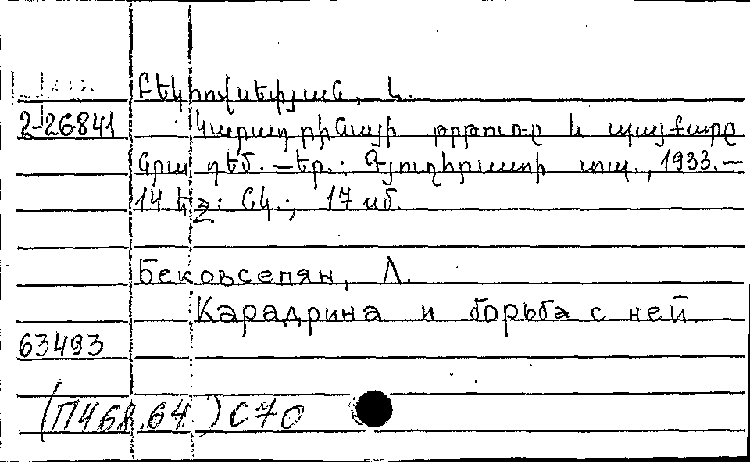 Բեկհովսեփյան, Լ.
2-26841 Կարադրինայի թրթուռը և պայքարը
նրա դեմ. — Եր.: Գյուղհրատի տպ., 1933. —
14 էջ: Նկ.; 17 սմ.
Бековсепян, Л.
Карадрина и борьба с ней.
63493
(П468.64.)С70